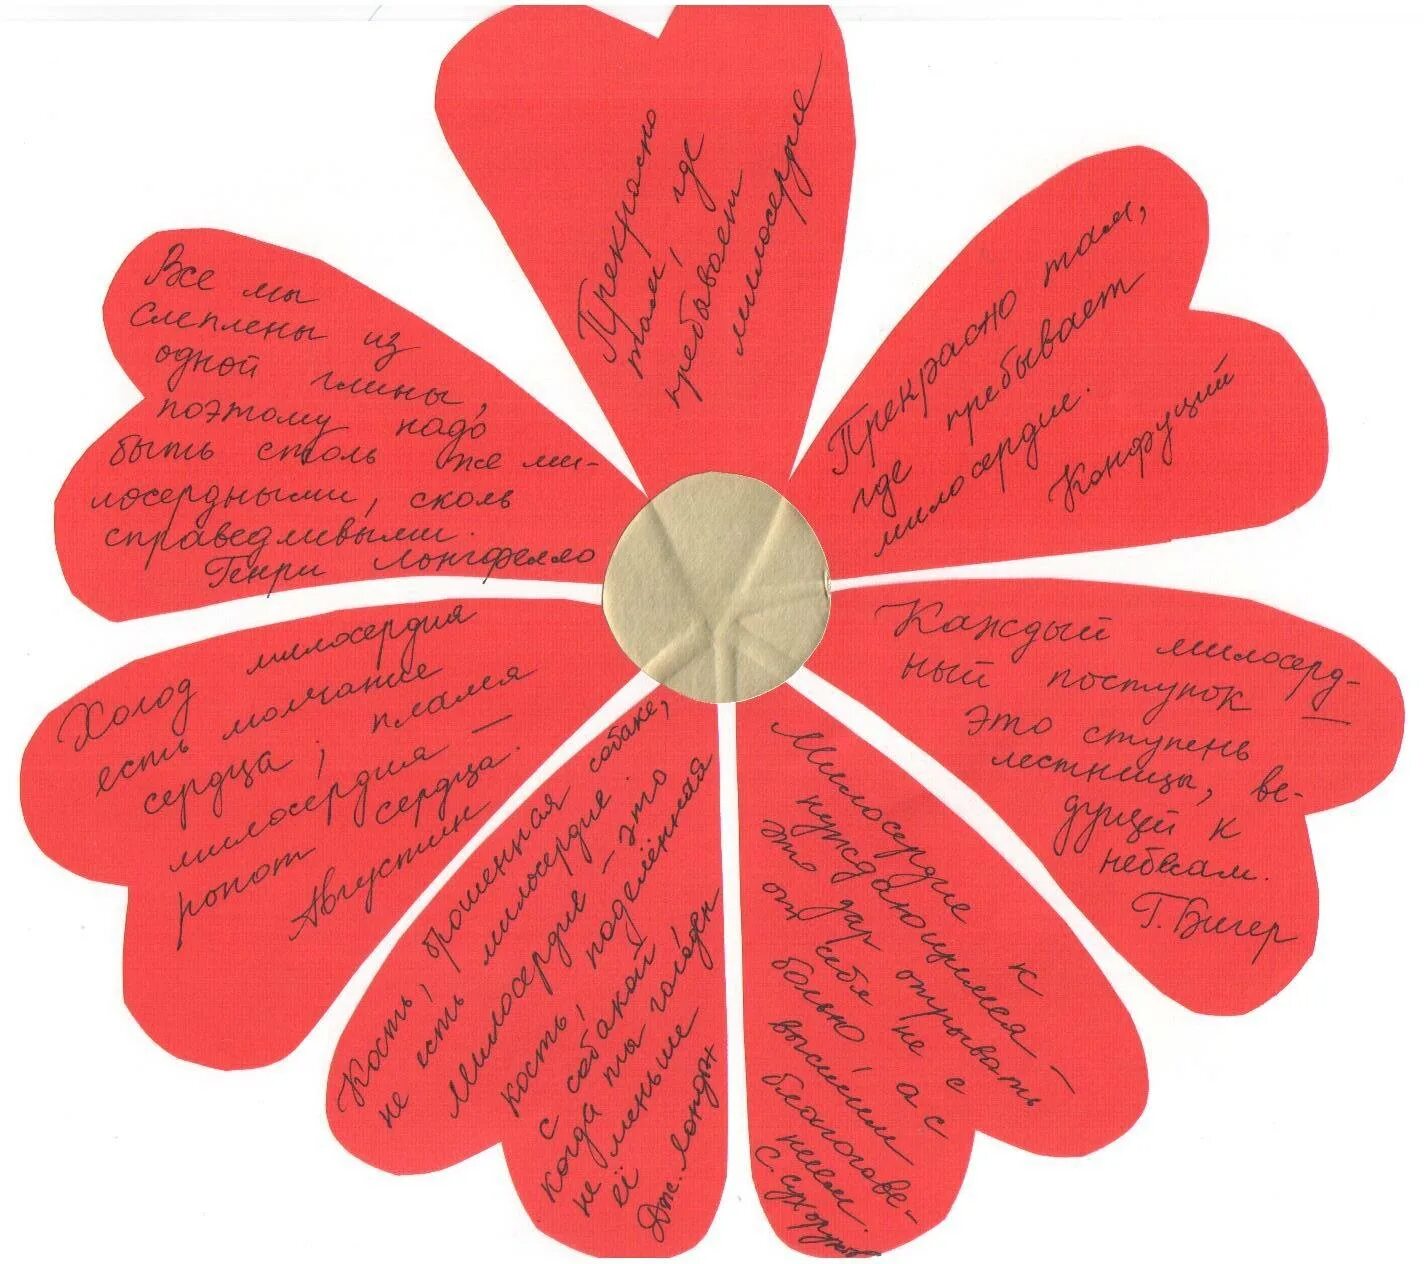 Прекрасно
там, где
пребывает
милосердие
Прекрасно там,
где пребывает
милосердие.
Конфуций
Каждый милосерд-
ный поступок —
это ступень
лестницы, ве-
дущей к
небесам.
Г. Бичер
Милосердие к
нуждающимся —
это дар отрывать
от себя не с
болью, а с
высшим
благогове-
нием.
С. Сухоруков
Кость, брошенная собаке,
не есть милосердие.
Милосердие – это
кость, поделённая
с собакой,
когда ты голоден
не меньше
её
Дж. Лондон
Холод милосердия
есть молчание
сердца; пламя
милосердия —
ропот сердца.
Августин
Все мы
слеплены из
одной глины,
поэтому надо
быть столь же ми-
лосердными, сколь
справедливыми.
Генри Лонгфелло